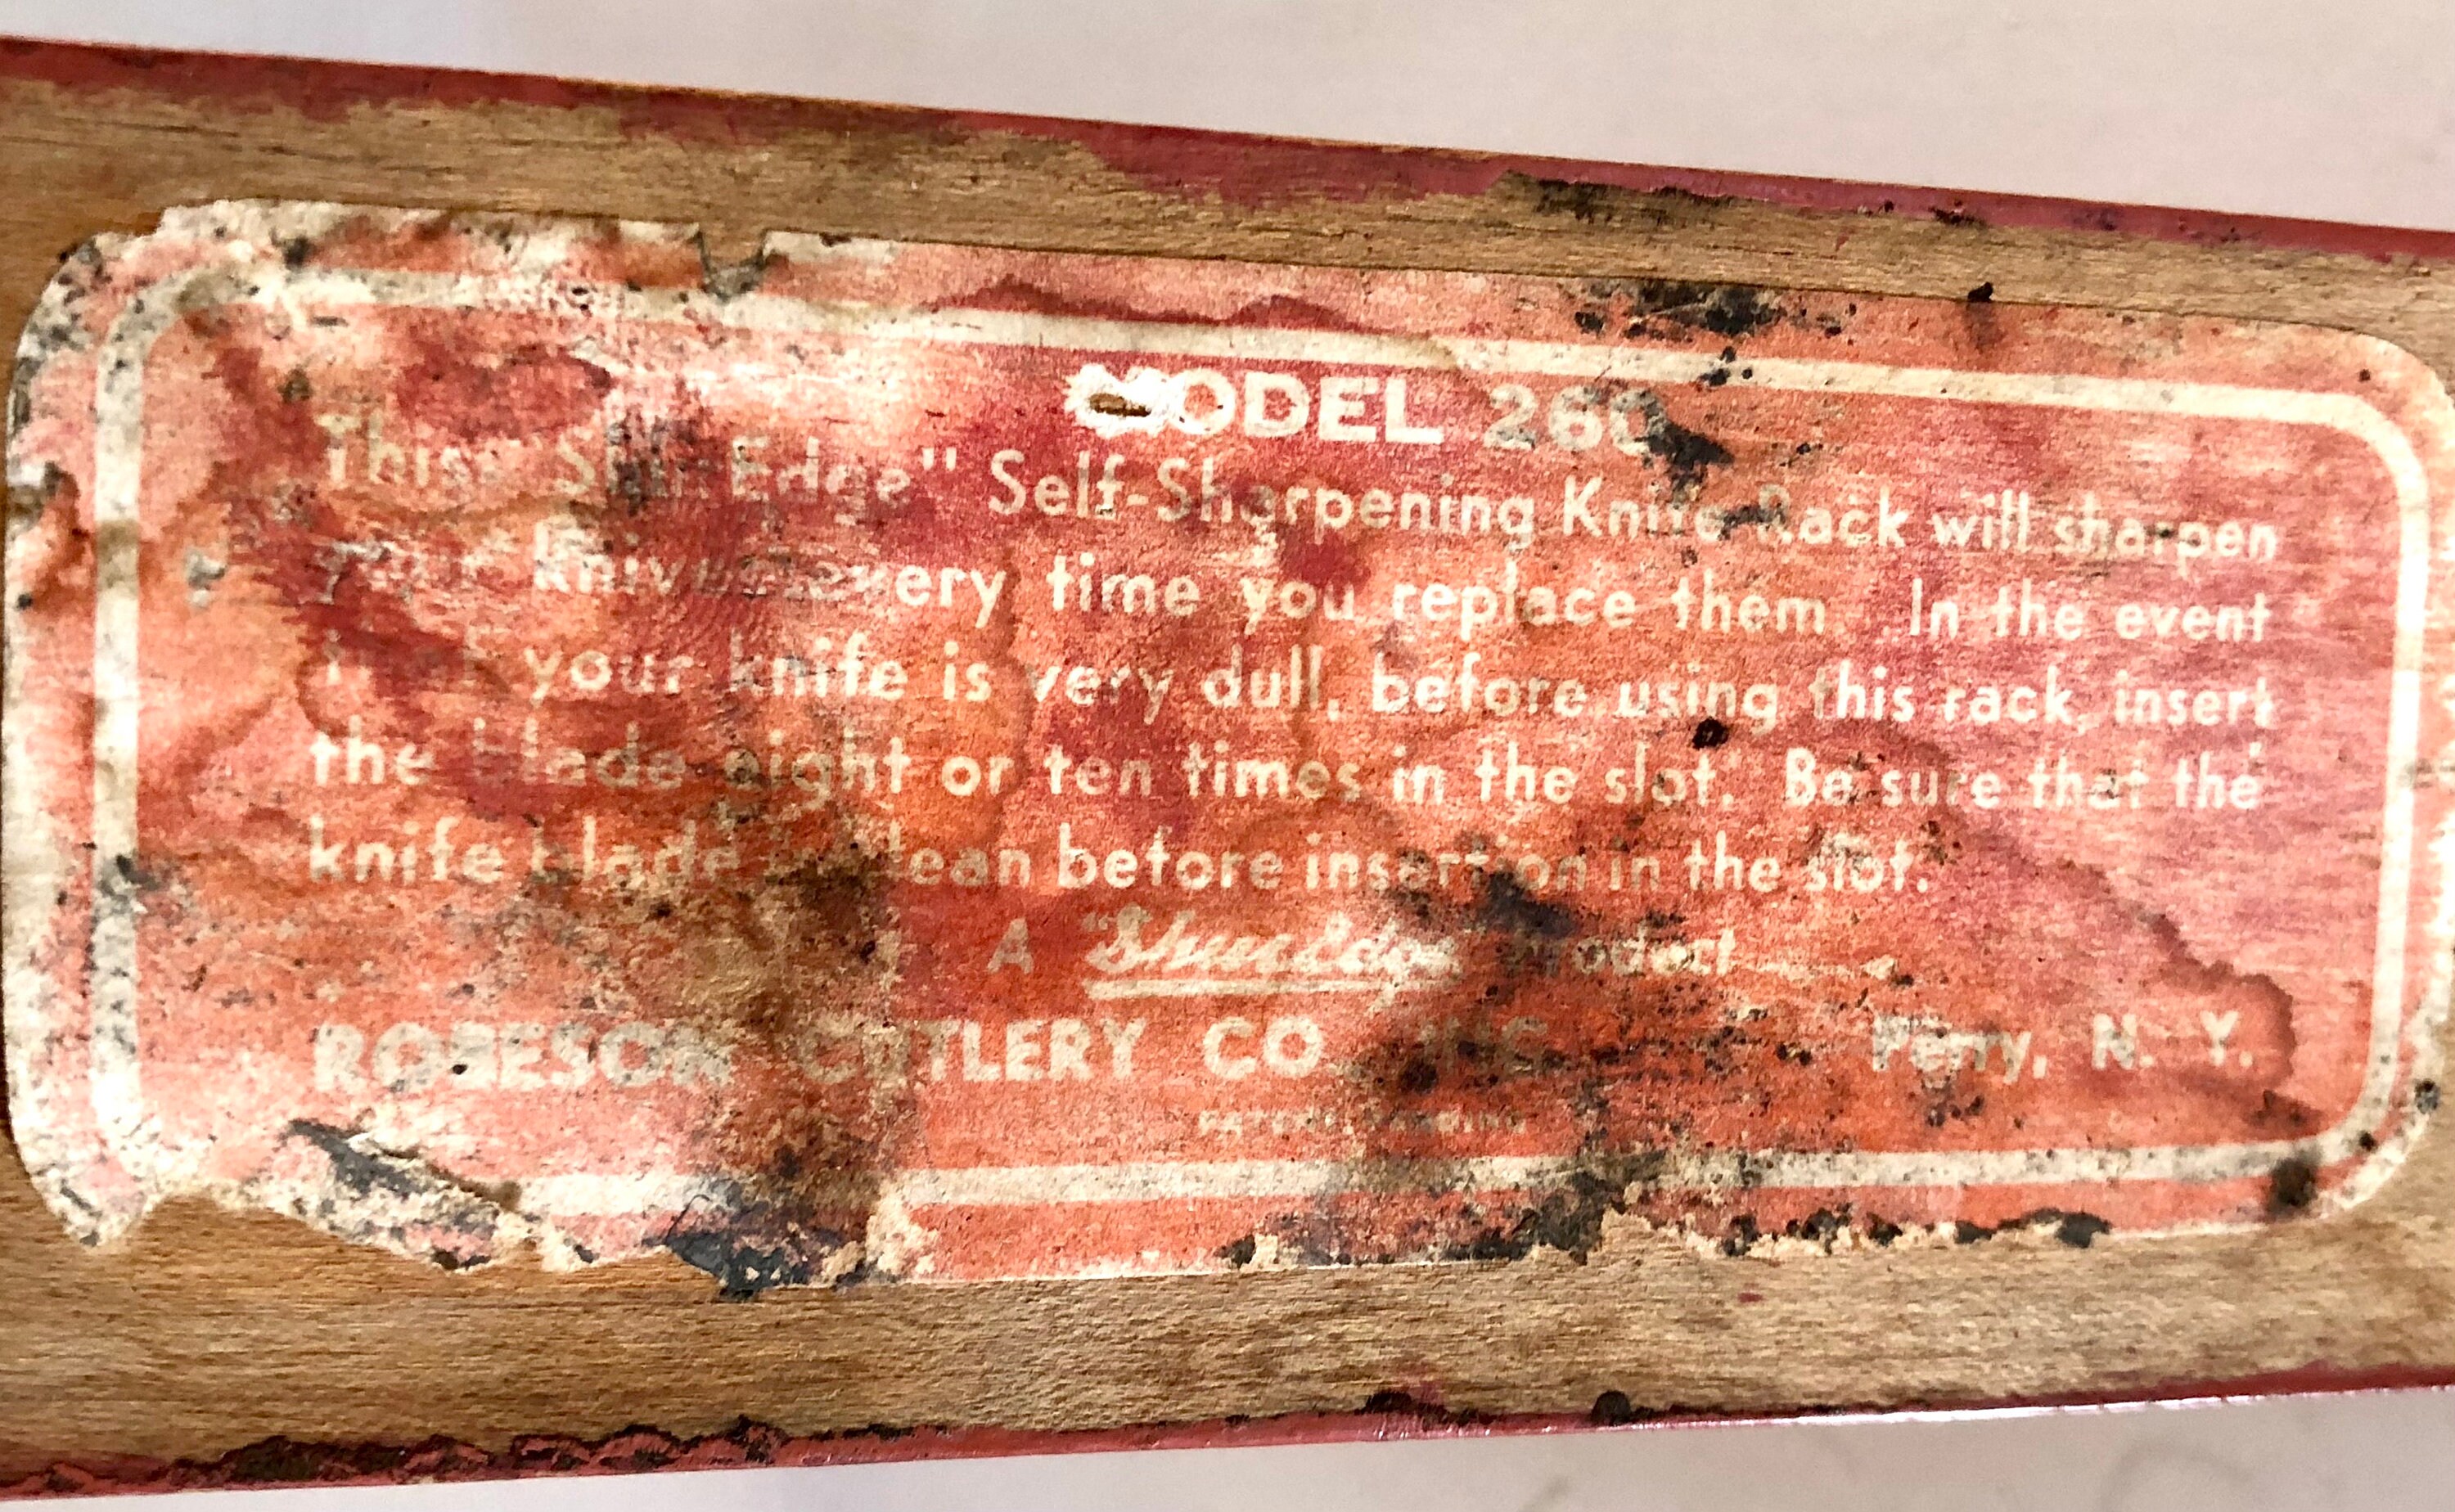 MODEL 260
This Edge" Self-Sharpening Knife Rack will sharpen
your knives every time you replace them. In the event
that your knife is very dull, before using this rack, insert
the blade eight or ten times in the slot. Be sure that the
knife blade is clean before insertion in the slot.
A "ShurEdge" Product
ROBESON CUTLERY CO. INC. Perry, N. Y.